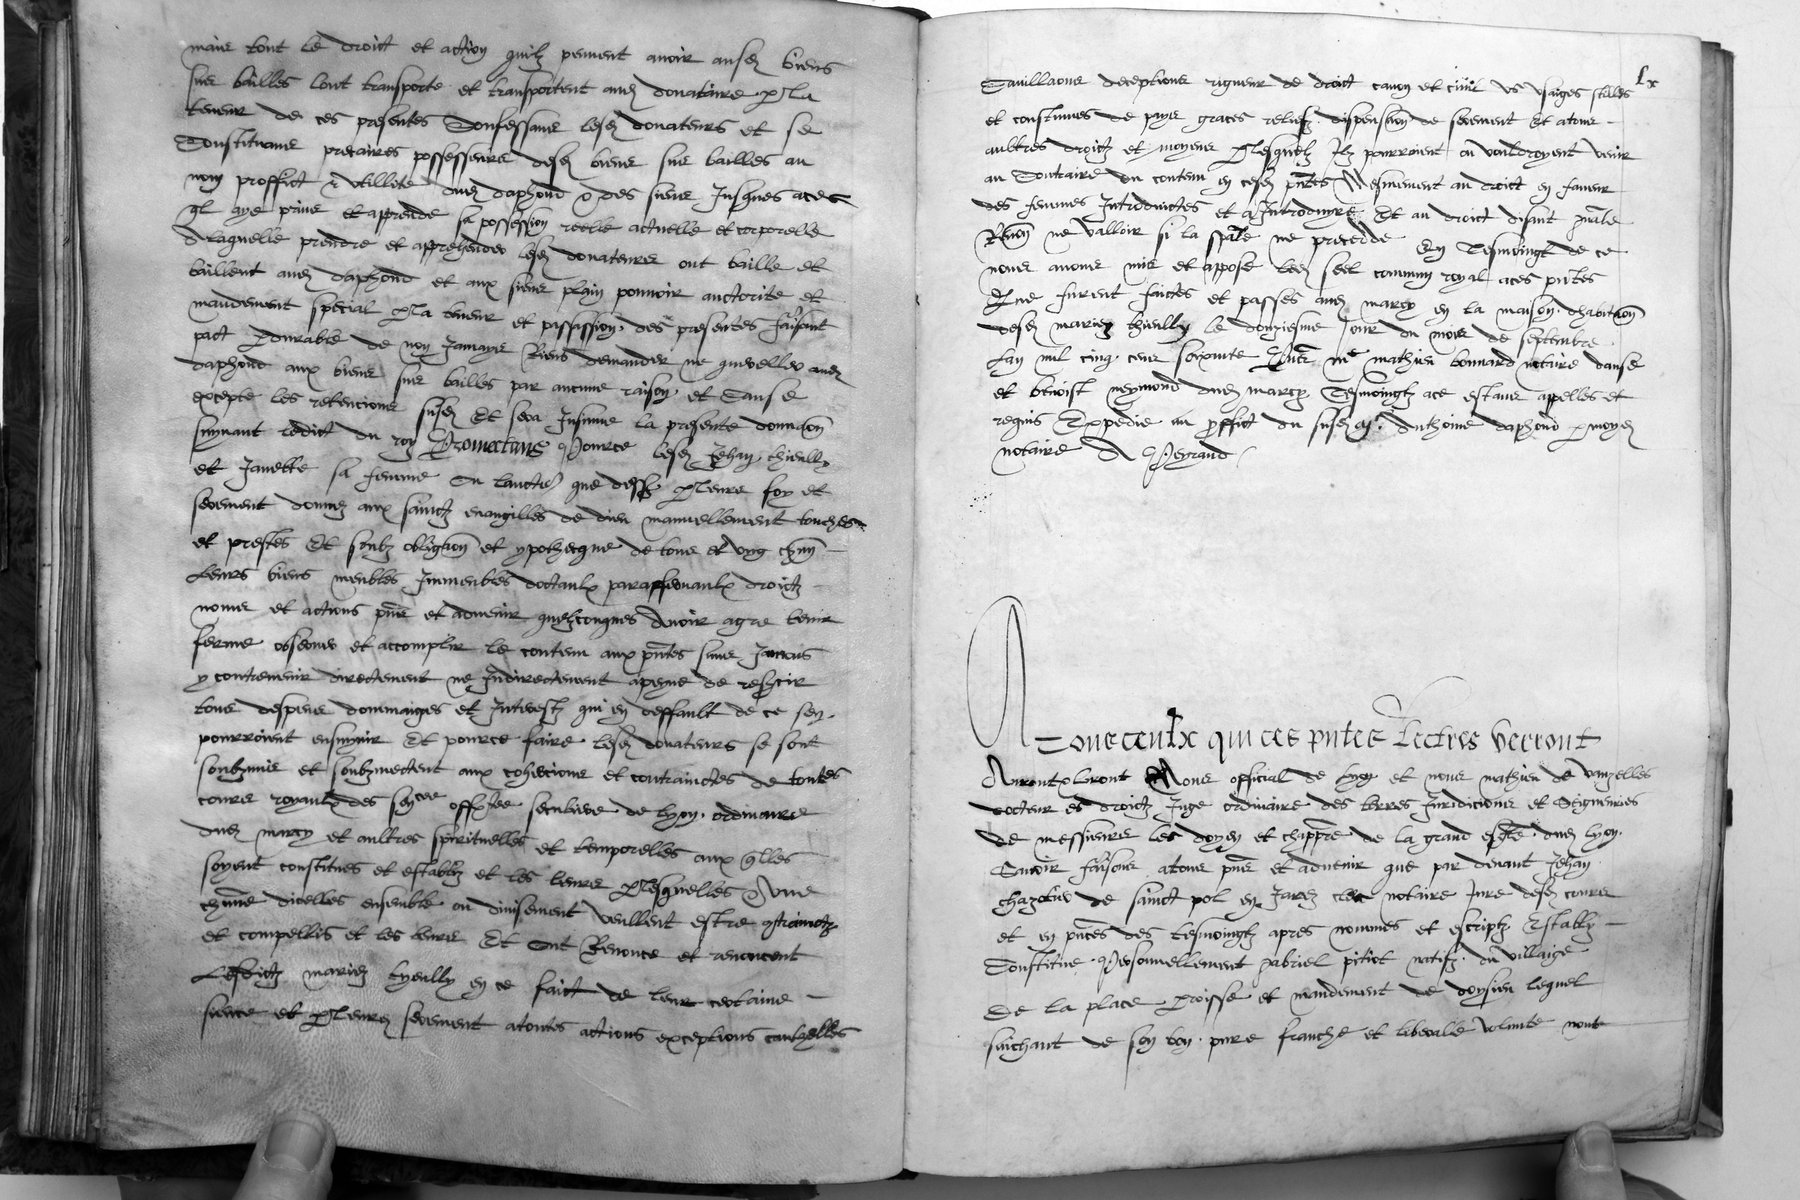 maire tout le droict et action quilz peuvent avoir ausd biens
sus bailles lont transporte et transportent aud donataire p la
teneur de ces presentes Confessans lesd donateurs et se
Constituans precaires possesseurs desd biens sus bailles au
nom proffict et utillite dud daphond et des siens Jusques aces
ql aye prinse et apprende sa possession reelle actuelle et corporelle
Alaquelle prendre et apprehender lesd donateurs ont baille et
baillent aud daphond et aux siens plain pouvoir auctorite et
mandement special p la teneur et passassion des presentes faisant
pact pdurable de non Jamays Riens demander ne quereller aud
daphond aux biens sus bailles par aucune raison et Cause
excepte les retencions susd Et sera Insinue la presente donnaon
suyvant ledict du roy Promectans Pource lesd Jehan thieully
et Janette sa femme que dessus p leurs foy et
serement donnez aux sainctz evangilles de dieu manuellement touches
et prestes Et soubz obligaon et ypothecque de tous et ung chun
Leurs biens meubles Immeubles doctaulx parafernaulx droictz
noms et actions pns et advenir quelzconques Avoir agre tenir
ferme observer et accomplir le contenu aux pntes sans Jamais
y contrevenir directement ne Indirectement apeyne de
tous despens dommaiges et Interestz qui en deffault de ce sen
pourroient ensuyvir Et pource faire lesd donateurs se sont
soubzmis et soubzmectent aux cohecions et contrainctes de toutes
cours royaulx des seneschal de lyon ordinaire
dud marcy et aultres spirituelles et temporelles aux qlles
soyent constitues et establiz et les leurs p lesquelles Dune
chune dicelles ensemble ou divisement veullent estre constrainctz
et compellis et les leurs Et Ont Renonce et renoncent
Lesdictz mariez thieully en ce faict de leur certaine
sience et p leurd serement atoutes actions exceptions cauthelles
Lx
Cavillaons deceptions rigueur de droict canon et civil us usaiges stilles
et constumes de pays graces reliefz dispensaon de serement Et atous
aultres droictz et moyens p lesquelz Ilz pourroient ou vouldroyent venir
au Contraire du contenu en cesd pntes Mesmement au droict en faveur
des femmes Introduictes et a Introduyre Et au droict disant gnale
Renon ne valloir si la spale ne precedde En Tesmoingt de ce
nous avons mis et appose led seel commun royal aces pntes
Que furent faictes et passes aud marcy en la maison dhabitaon
desd mariez thieully le douziesme Jour du mois de septembre
Lan mil cinq cens soixante Pns me mathieu bonnard notaire
et benoist neymond dud marcy Tesmoingtz ace estans appelles et
requis Expedie au proffict du susd Anthoine daphond p moyd
notaire A Peyraud
A Tous ceulx qui ces pntes Lectres verront
Nous official de lyon et nous mathieu de vauzelles
docteur es droictz Juge ordinaire des terres Juridicions et Seigneuries
de messieurs les doyen et chappre de la grand eglise dud lyon
Savoir faisons atous pns et advenir que par devant Jehan
de sainct pol en Jarez clerc notaire Jure desd cours
et en pnces des tesmoingtz apres nommes et escriptz Estably
Constitue Personnellement gabriel pitiot natifz du villaige
De la place proisse et mandement de doysieu lequel
saichant de son bon pure franche et liberalle volunte